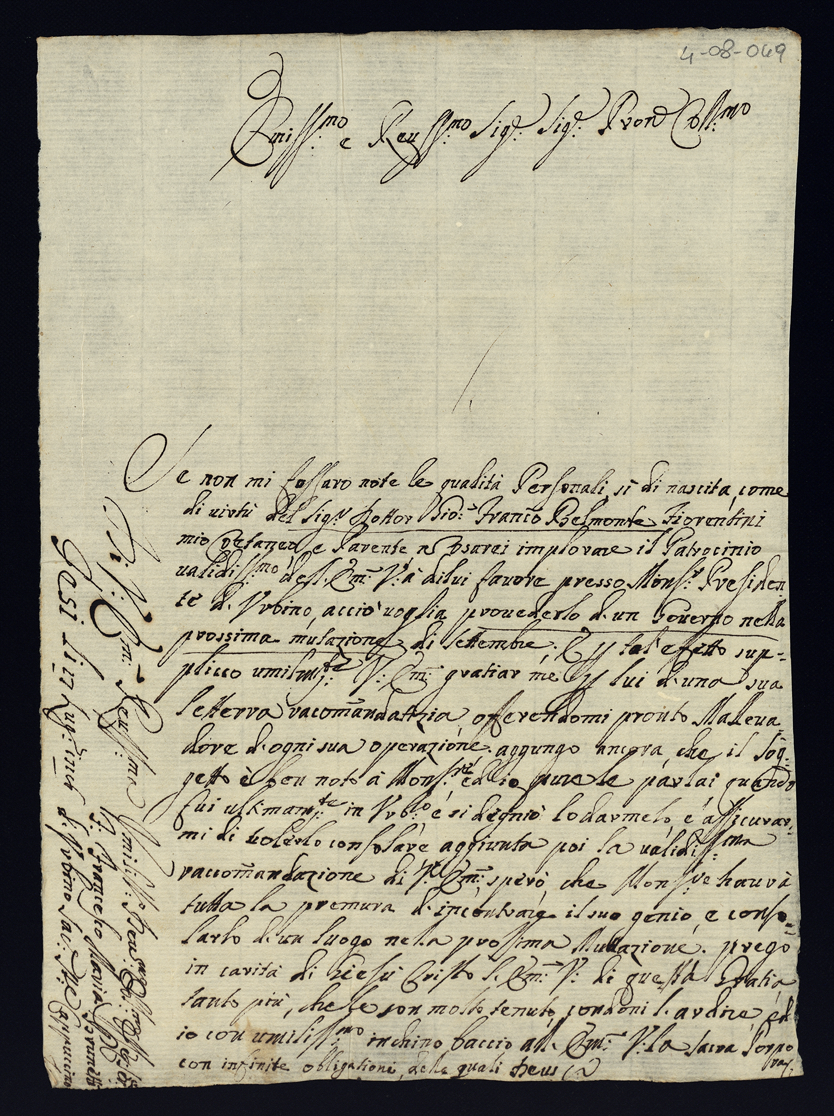 4-08-049
Emiss:mo e Reuss:mo Sig:re Sig:re Pron Coll:mo
Se non mi fossaro note le qualità Personali sì di nascita, come
di uirtù del Sig:r Dottor Gio: Franco Belmonte Fiorentini
mio e Parente n Osarei implorare il Patrocinio
ualidiss:mo dell Em: V:a à dilui fauore presso Mons:r Presiden
te d'Vrbino, acciò uoglia prouederlo d'un Gouerno nella
prossima mutazione di settembre. E p tal effetto sup-
plicco umilm:te V: Em: gratiar me p lui d'una sua
lettera racomandatizia, offerendomi pronto Malleua
dore d'ogni sua operazione. aggungo ancora, che il Sog-
getto è ben noto à Mons:re ed io pure le parlai quando
fui ultimam:te in Vrb:o e si degniò lodarmelo, e assicurar-
mi di uolerlo consolare aggiunta poi la ualidiss:ma
raccomandazione di V: Em: spero, che Mons:re haurà
tutta la premura d'incontrare il suo genio, e conso-
larlo d'un luogo nella prossima Mutazione. prego
in carità di Giesù Cristo l'Em: V: di questa Gratia
tanto più, che le son molto tenuto, condoni l'ardire, ed
io con umiliss:mo inchino baccio all Em: V: la sacra Porpo
ra,
con infinite obligationi, delle quali
Di V: Em: Reuss:ma
Jesi li 17 Lug:
Umiliss:
F. Francesco Maria
di Vrbino Cappucino